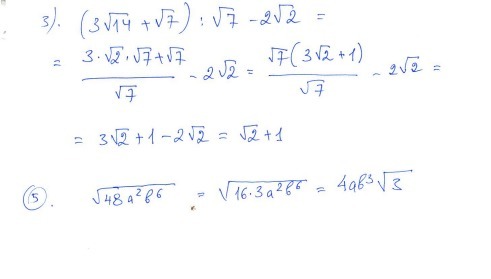 3). (3√14 + √7) : √7 - 2√2 =
= (3·√2·√7+√7)/√7 - 2√2 = √7(3√2+1)/√7 - 2√2 =
= 3√2 + 1 - 2√2 = √2 + 1
⑤. √(48a²b⁶) = √(16·3a²b⁶) = 4ab³√3